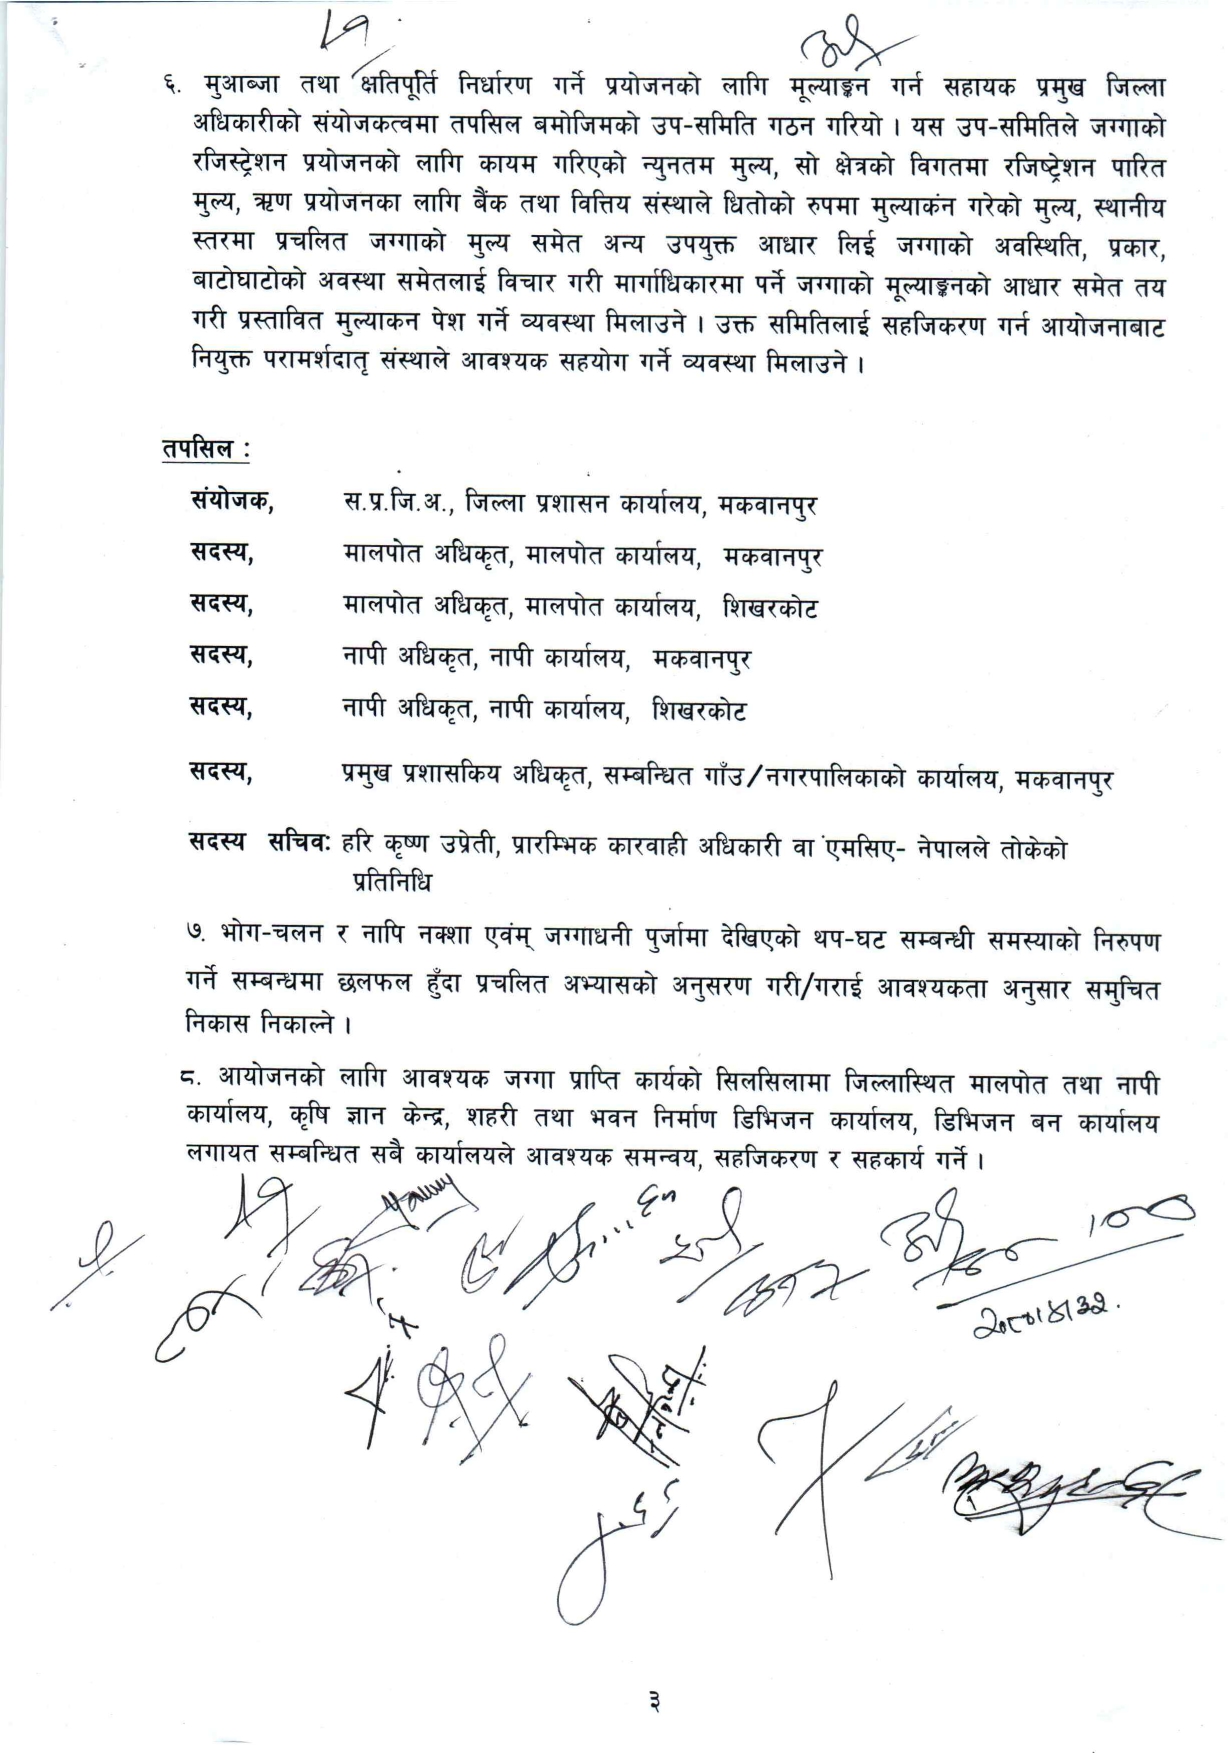 ६. मुआब्जा तथा क्षतिपूर्ति निर्धारण गर्ने प्रयोजनको लागि मूल्याङ्कन गर्न सहायक प्रमुख जिल्ला
अधिकारीको संयोजकत्वमा तपसिल बमोजिमको उप-समिति गठन गरियो । यस उप-समितिले जग्गाको
रजिस्ट्रेशन प्रयोजनको लागि कायम गरिएको न्युनतम मुल्य, सो क्षेत्रको विगतमा रजिष्ट्रेशन पारित
मुल्य, ऋण प्रयोजनका लागि बैंक तथा वित्तिय संस्थाले धितोको रुपमा मुल्याकंन गरेको मुल्य, स्थानीय
स्तरमा प्रचलित जग्गाको मुल्य समेत अन्य उपयुक्त आधार लिई जग्गाको अवस्थिति, प्रकार,
बाटोघाटोको अवस्था समेतलाई विचार गरी मार्गाधिकारमा पर्ने जग्गाको मूल्याङ्कनको आधार समेत तय
गरी प्रस्तावित मुल्याकन पेश गर्ने व्यवस्था मिलाउने । उक्त समितिलाई सहजिकरण गर्न आयोजनाबाट
नियुक्त परामर्शदातृ संस्थाले आवश्यक सहयोग गर्ने व्यवस्था मिलाउने ।
तपसिल :
संयोजक, स.प्र.जि.अ., जिल्ला प्रशासन कार्यालय, मकवानपुर
सदस्य, मालपोत अधिकृत, मालपोत कार्यालय, मकवानपुर
सदस्य, मालपोत अधिकृत, मालपोत कार्यालय, शिखरकोट
सदस्य, नापी अधिकृत, नापी कार्यालय, मकवानपुर
सदस्य, नापी अधिकृत, नापी कार्यालय, शिखरकोट
सदस्य, प्रमुख प्रशासकिय अधिकृत, सम्बन्धित गाँउ/नगरपालिकाको कार्यालय, मकवानपुर
सदस्य सचिवः हरि कृष्ण उप्रेती, प्रारम्भिक कारवाही अधिकारी वा एमसिए- नेपालले तोकेको
प्रतिनिधि
७. भोग-चलन र नापि नक्शा एवंम् जग्गाधनी पुर्जामा देखिएको थप-घट सम्बन्धी समस्याको निरुपण
गर्ने सम्बन्धमा छलफल हुँदा प्रचलित अभ्यासको अनुसरण गरी/गराई आवश्यकता अनुसार समुचित
निकास निकाल्ने ।
८. आयोजनको लागि आवश्यक जग्गा प्राप्ति कार्यको सिलसिलामा जिल्लास्थित मालपोत तथा नापी
कार्यालय, कृषि ज्ञान केन्द्र, शहरी तथा भवन निर्माण डिभिजन कार्यालय, डिभिजन बन कार्यालय
लगायत सम्बन्धित सबै कार्यालयले आवश्यक समन्वय, सहजिकरण र सहकार्य गर्ने ।
३